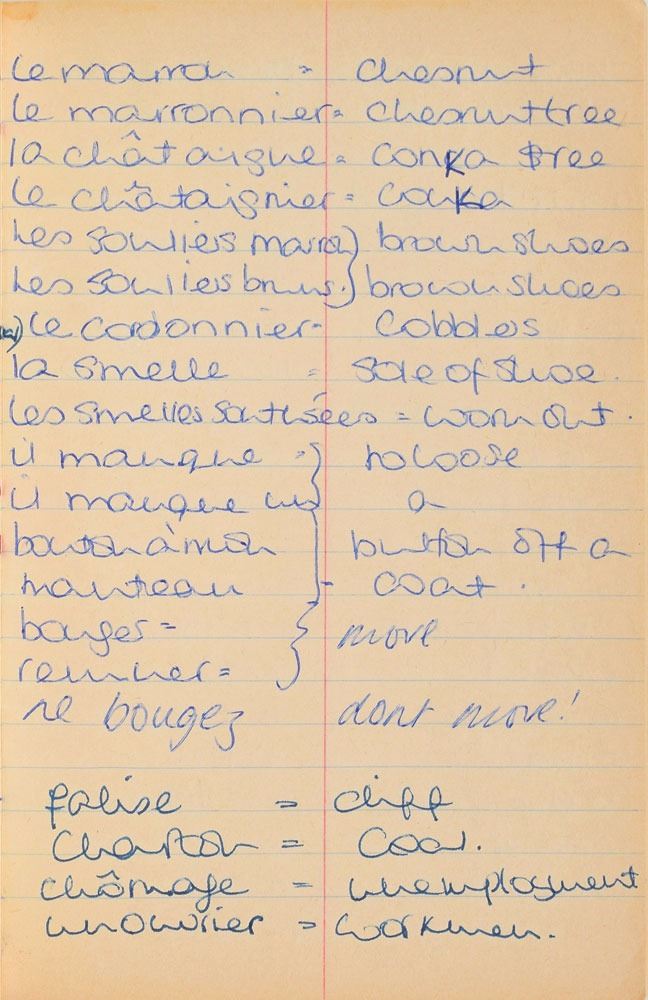 le marron = chesnut
le marronnier = chesnuttree
la châtaigne = conka tree
le châtaignier = conka
Les souliers marron) brown shoes
Les souliers bruns.) brown shoes
le cordonnier - Cobblers
la smelle = sole of shoe.
les smelles sont usées = worn out.
il manque = to loose
il manque un a
bouton à mon button off a
manteau - coat.
bouger =
remuer = } move
ne bougez dont move!
falise = cliff
Charbon = Coal.
chômage = unemployment
un ouvrier = workmen.